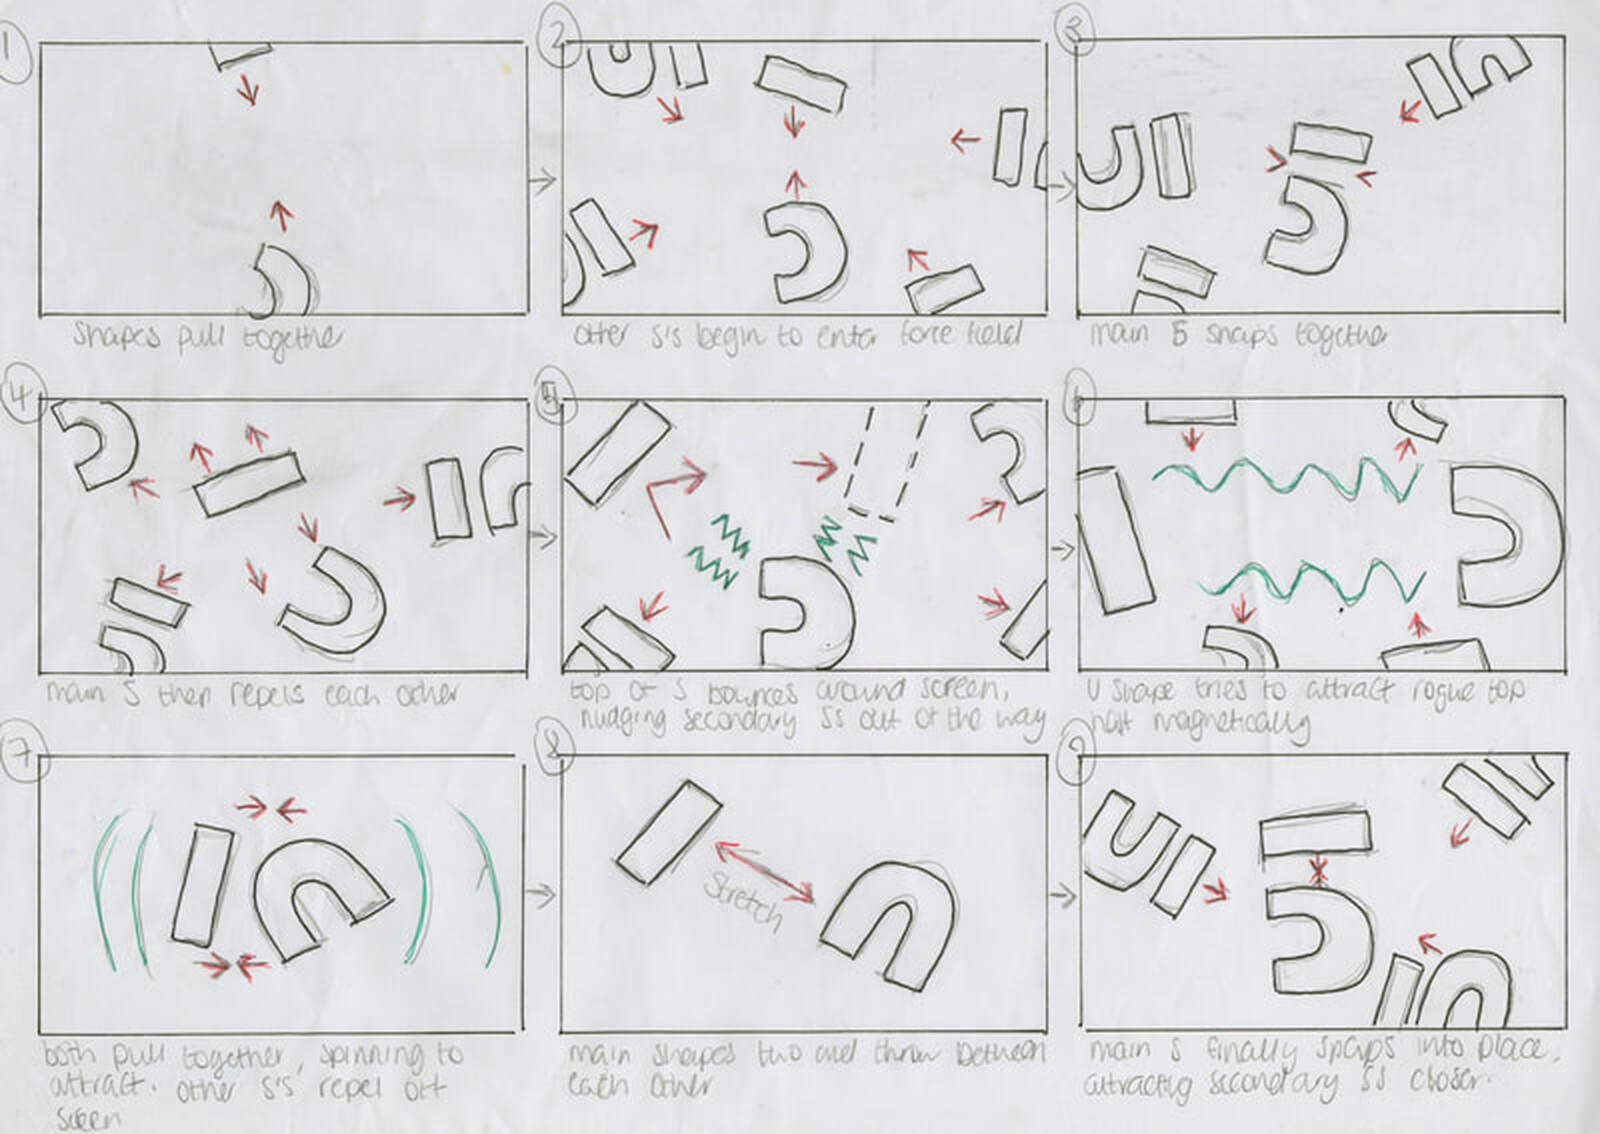 1
2
3
shapes pull together
other S's begin to enter force field
main S snaps together
4
5
6
main S then repels each other
top of S bounces around screen,
nudging secondary Ss out of the way
U shape tries to attract rogue top
magnetically
7
8
9
Stretch
both pull together, spinning to
attract. other S's repel off
screen
main shapes two and throw between
each other
main S finally snaps into place,
attracting secondary Ss closer.